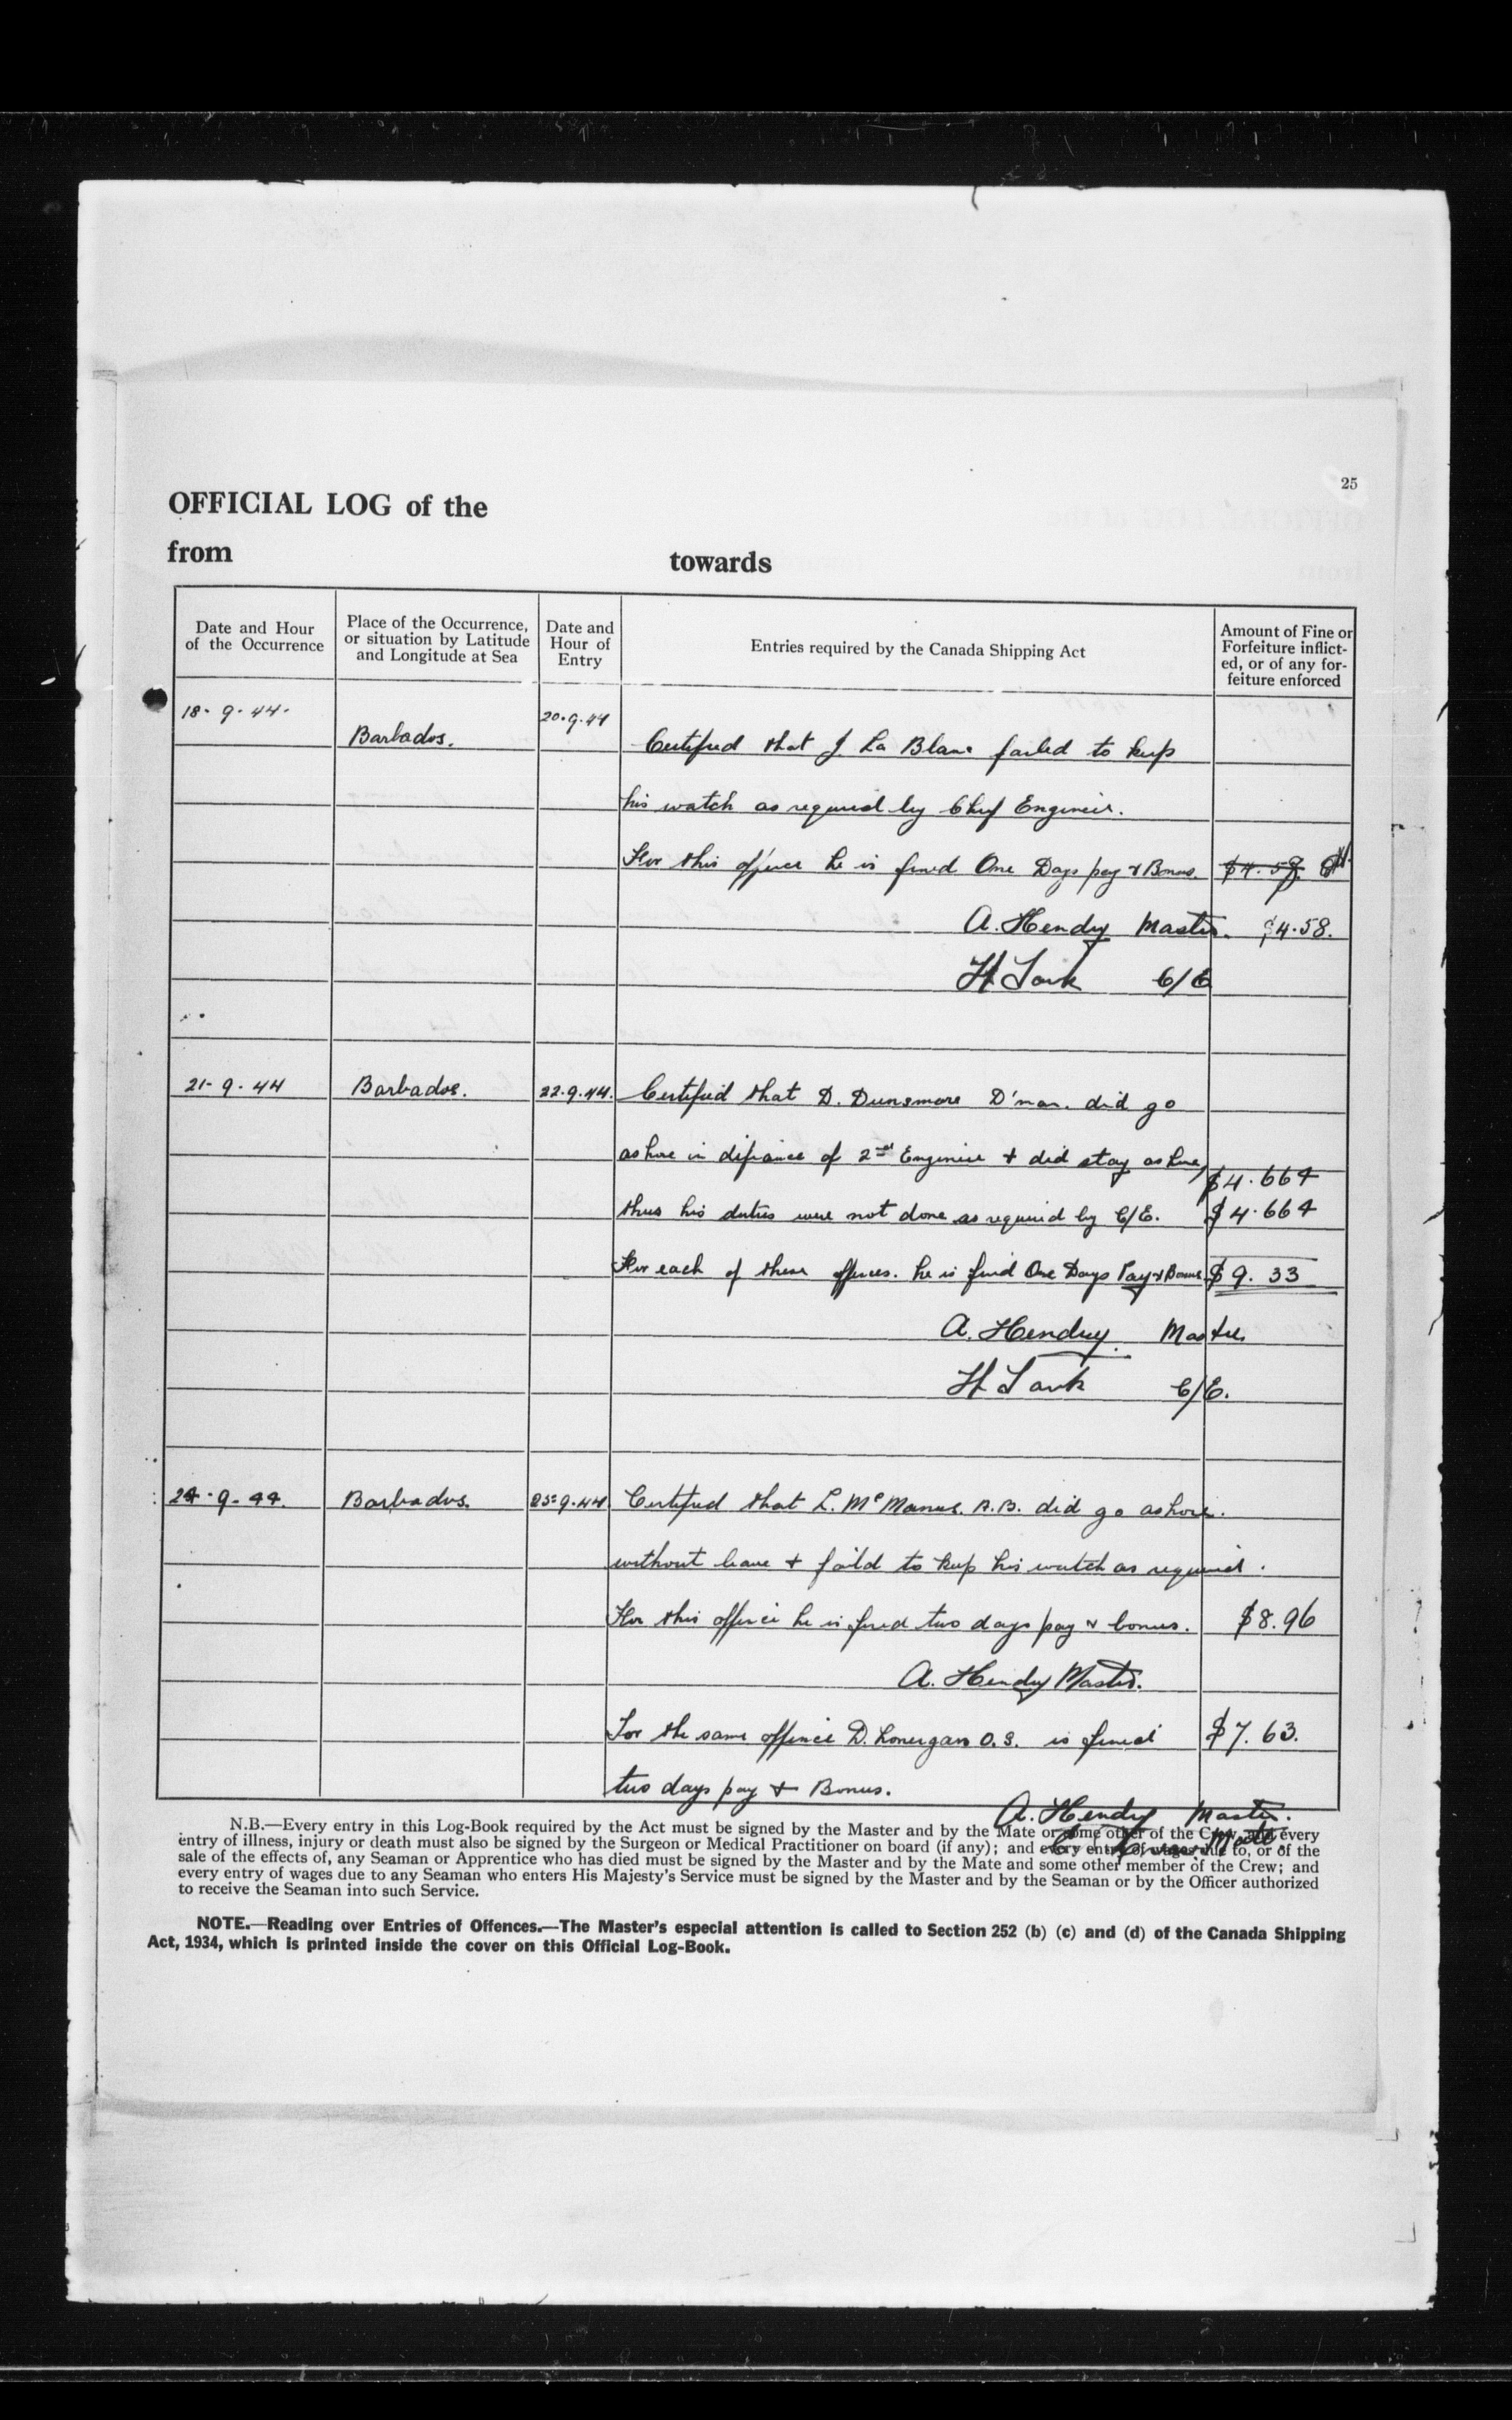 25
OFFICIAL LOG of the
from towards
Date and Hour of the Occurrence
Place of the Occurrence, or situation by Latitude and Longitude at Sea
Date and Hour of Entry
Entries required by the Canada Shipping Act
Amount of Fine or Forfeiture inflict-ed, or of any for-feiture enforced
18-9-44. Barbados. 20.9.44 Certified that J La Blanc failed to keep
his watch as required by Chief Engineer.
For this offence he is fined One Days pay & Bonus. $4.58 AH.
A. Hendry Master. $4.58.
H Lark C/E
21-9-44 Barbados. 22.9.44. Certified that D. Dunsmore D'man. did go
ashore in defiance of 2nd Engineer + did stay ashore, $4.664
thus his duties were not done as required by C/E. $4.664
For each of these offences. he is fined One Days Pay & Bonus $9.33
A. Hendry. Master.
H Lark C/E.
24-9-44. Barbados. 25-9-44 Certified that L. McManus. A.B. did go ashore.
without leave + faild to keep his watch as required.
For this offence he is fined two days pay & bonus. $8.96
A. Hendry Master.
For the same offence D. Lonergan O.S. is fined $7.63.
two days pay + Bonus.
A. Hendry Master.
Mate
N.B.—Every entry in this Log-Book required by the Act must be signed by the Master and by the Mate or some other of the Crew, and every
entry of illness, injury or death must also be signed by the Surgeon or Medical Practitioner on board (if any); and every entry of wages due to, or of the
sale of the effects of, any Seaman or Apprentice who has died must be signed by the Master and by the Mate and some other member of the Crew; and
every entry of wages due to any Seaman who enters His Majesty's Service must be signed by the Master and by the Seaman or by the Officer authorized
to receive the Seaman into such Service.
NOTE.—Reading over Entries of Offences.—The Master's especial attention is called to Section 252 (b) (c) and (d) of the Canada Shipping
Act, 1934, which is printed inside the cover on this Official Log-Book.